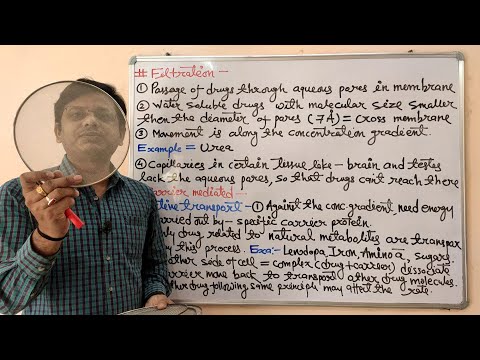 # Filtration —
① Passage of drugs through aqueous pores in membrane
② Water soluble drugs with molecular size smaller
then the diameter of pores (7Å) = Cross membrane
③ Movement is along the concentration gradient.
Example = Urea
④ Capillaries in certain tissue like – brain and testes
lack the aqueous pores, so that drugs can't reach there
carrier mediated —
tive transport – ① Against the conc. gradient need energy
carried out by – specific carrier protein.
nly drug related to natural metabolites are transpor
by this process. Exa:- Levodopa, Iron, Amino a, sugars
other side of cell = complex (drug + carrier) dissociate
carrier move back to transport other drug molecules.
ther drug following same principle may affect the rate.